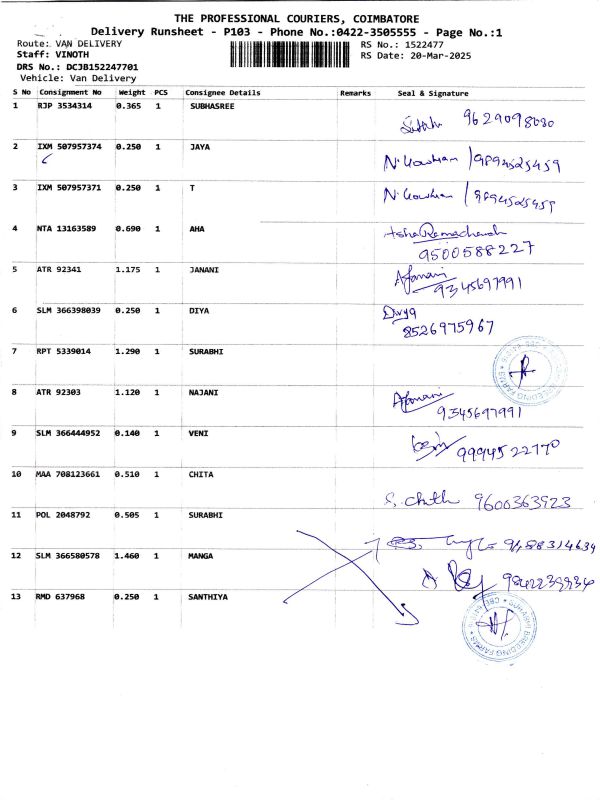 THE PROFESSIONAL COURIERS, COIMBATORE
Delivery Runsheet - P103 - Phone No.:0422-3505555 - Page No.:1
Route: VAN DELIVERY RS No.: 1522477
Staff: VINOTH RS Date: 20-Mar-2025
DRS No.: DCJB152247701
Vehicle: Van Delivery
S No Consignment No Weight PCS Consignee Details Remarks Seal & Signature
1 RJP 3534314 0.365 1 SUBHASREE
9629098080
2 IXM 507957374 0.250 1 JAYA
N. Gowtham / 9894525459
3 IXM 507957371 0.250 1 T
N. Gowtham / 9894525459
4 NTA 13163589 0.690 1 AHA
Asha Ramachandran
9500588227
5 ATR 92341 1.175 1 JANANI
Janani
9345697991
6 SLM 366398039 0.250 1 DIYA
Divya
8526975967
7 RPT 5339014 1.290 1 SURABHI
BREEDING FARMS
8 ATR 92303 1.120 1 NAJANI
Janani
9345697991
9 SLM 366444952 0.140 1 VENI
9994522770
10 MAA 708123661 0.510 1 CHITA
S. Chith 9600363923
11 POL 2048792 0.505 1 SURABHI
9488314634
12 SLM 366580578 1.460 1 MANGA
9842239934
13 RMD 637968 0.250 1 SANTHIYA
SURABHI BREEDING FARMS